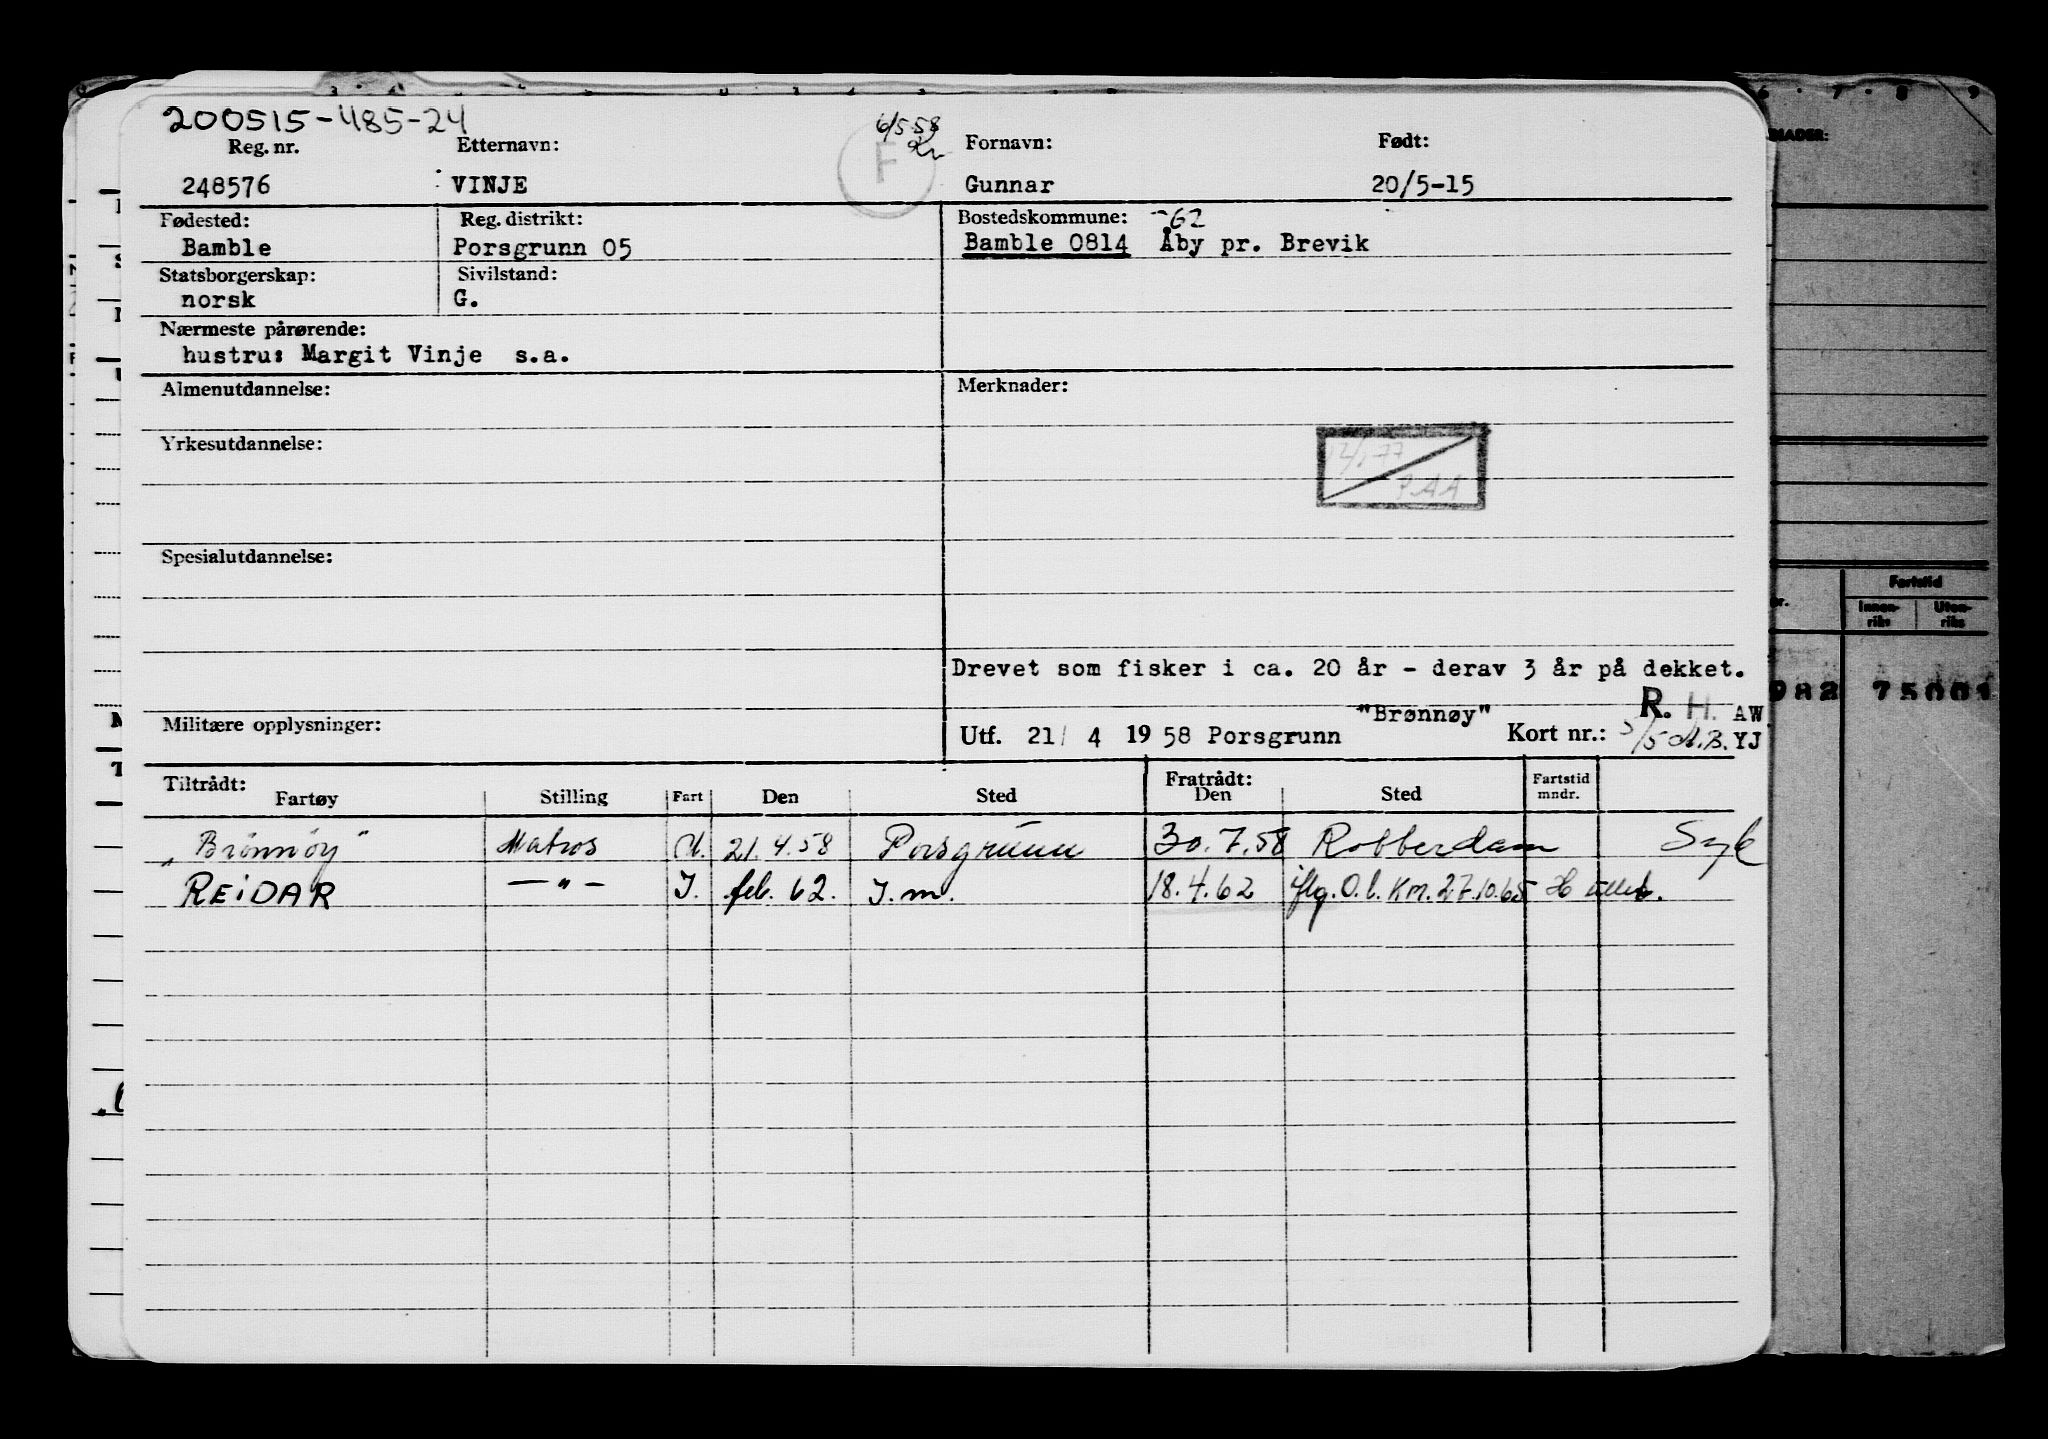 200515-485-24
6/5-58
F
Reg. nr. Etternavn: Fornavn: Født:
248576 VINJE Gunnar 20/5-15
Fødested: Reg. distrikt: Bostedskommune: -62
Bamble Porsgrunn 05 Bamble 0814 Åby pr. Brevik
Statsborgerskap: Sivilstand:
norsk G.
Nærmeste pårørende:
hustru: Margit Vinje s.a.
Almenutdannelse: Merknader:
Yrkesutdannelse:
12/1-77
PAA
Spesialutdannelse:
Drevet som fisker i ca. 20 år - derav 3 år på dekket.
"Brønnøy" R. H. AW
Militære opplysninger: Utf. 21/ 4 19 58 Porsgrunn Kort nr.: 5/5 M.B. YJ
Tiltrådt: Fratrådt: Fartstid
Fartøy Stilling Fart Den Sted Den Sted mndr.
"Brønnøy" Matros U. 21.4.58 Porsgrunn 30.7.58 Rotterdam Syk
REIDAR —"— I. feb. 62. I.m. 18.4.62 iflg. O.l. KM. 27.10.65
6 7 8 9
Fartstid
Innen-
riks
Uten-
riks
982 75001